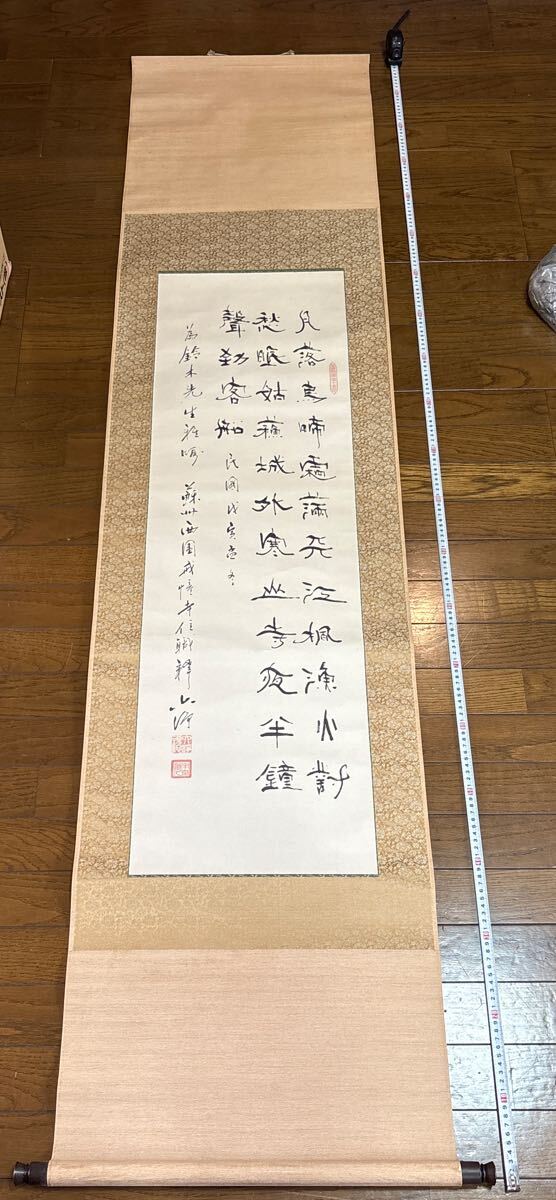 月落烏啼霜滿天江楓漁火對
愁眠姑蘇城外寒山寺夜半鐘
聲到客船 民國戊寅冬
為鈴木先生雅囑 蘇州西園戒幢寺住職釋六